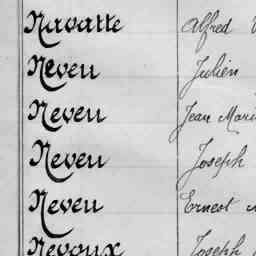 Navatte Alfred
Neveu Julien
Neveu Jean Mari
Neveu Joseph
Neveu Ernest
Nevoux Joseph